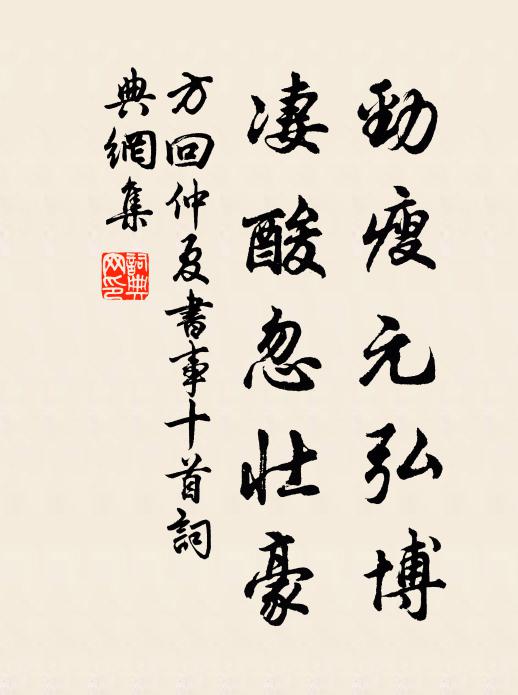 勁瘦元弘博
凄酸忽壯豪
方回仲夏書事十首詞
典網集
詞典網印